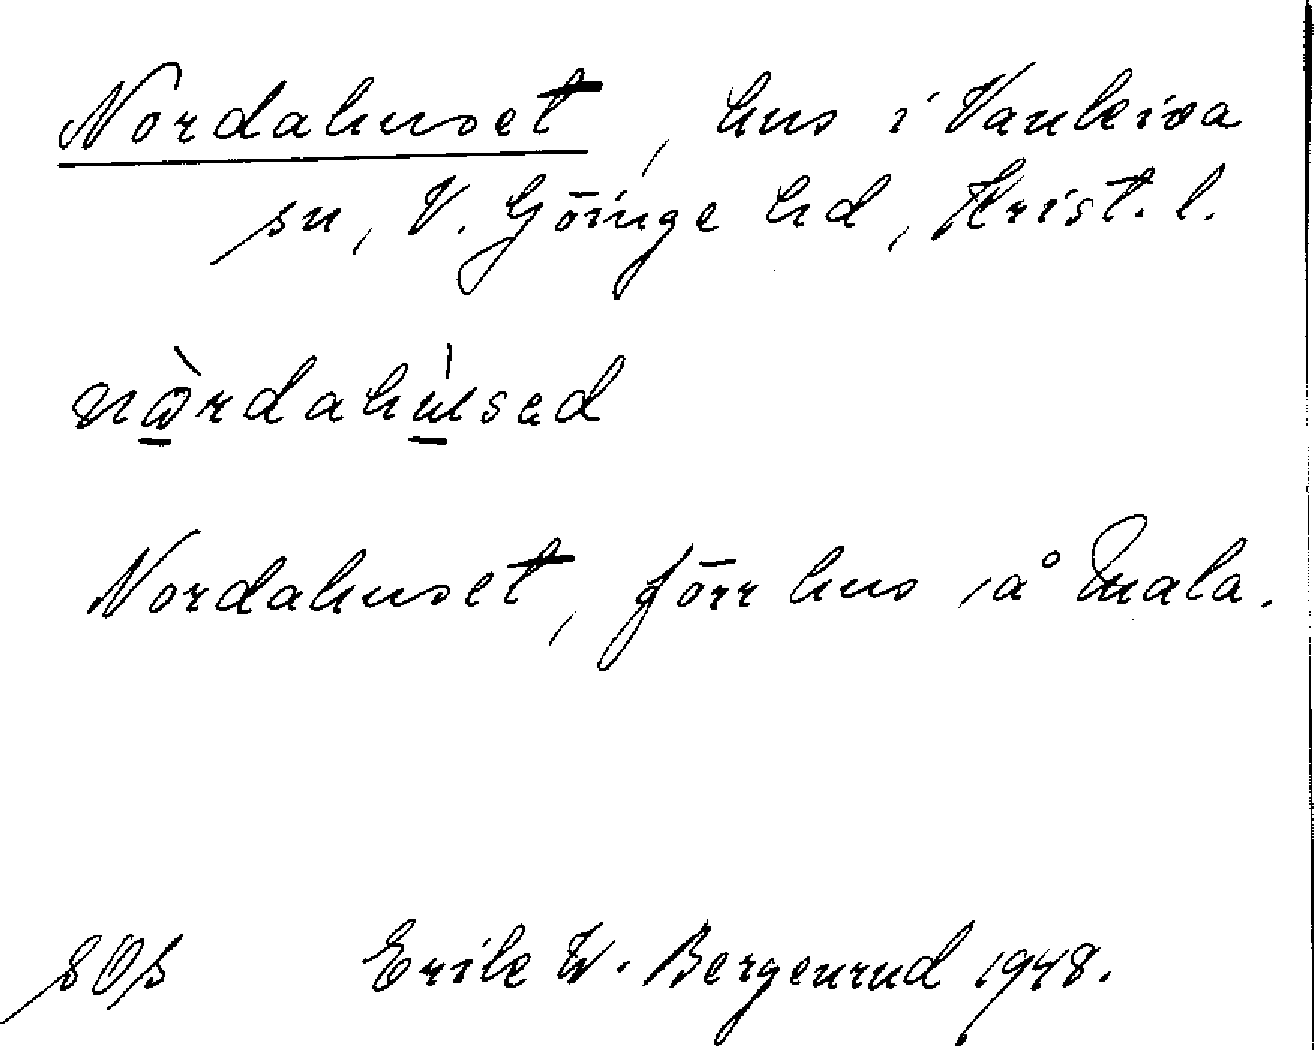 Nordahuset, hus i Vankiva
sn, V. Göinge hd, Krist. l.
nòrdahúsəd
Nordahuset, förr hus på Mala.
SOS Erik W. Bergenrud 1948.